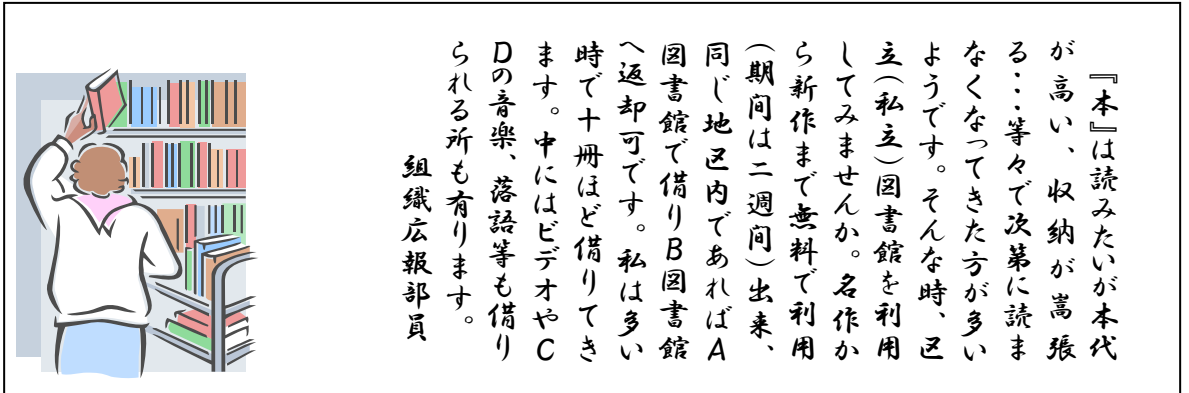 『本』は読みたいが本代
が高い、収納が嵩張
る・・等々で次第に読ま
なくなってきた方が多い
ようです。そんな時、区
立(私立)図書館を利用
してみませんか。名作か
ら新作まで無料で利用
(期間は二週間)出来、
同じ地区内であればA
図書館で借りB図書館
へ返却可です。私は多い
時で十冊ほど借りてき
ます。中にはビデオやC
Dの音楽、落語等も借り
られる所も有ります。
組織広報部員